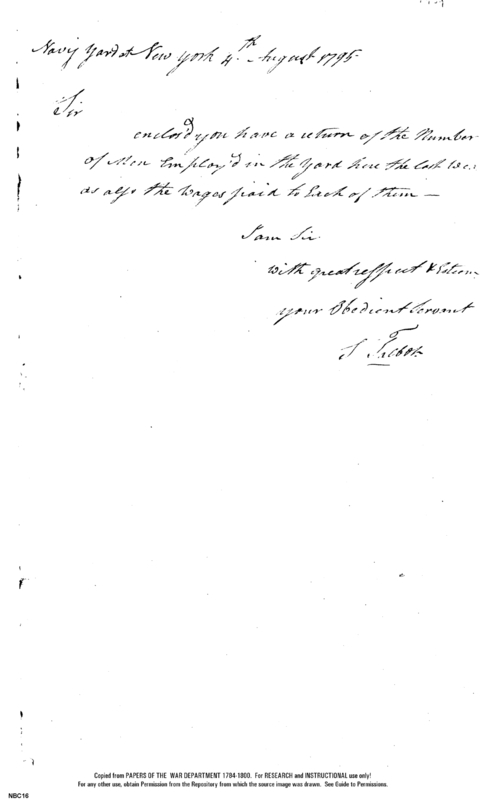 Navy Yard at New York 4th August 1795
Sir
enclosd you have a return of the Number
of Men Employ'd in the Yard here the last
as also the Wages paid to Each of them —
I am Sir
with great respect & Esteem
your Obedient Servant
S Talbot
Copied from PAPERS OF THE WAR DEPARTMENT 1784-1800. For RESEARCH and INSTRUCTIONAL use only!
For any other use, obtain Permission from the Repository from which the source image was drawn. See Guide to Permissions.
NBC16